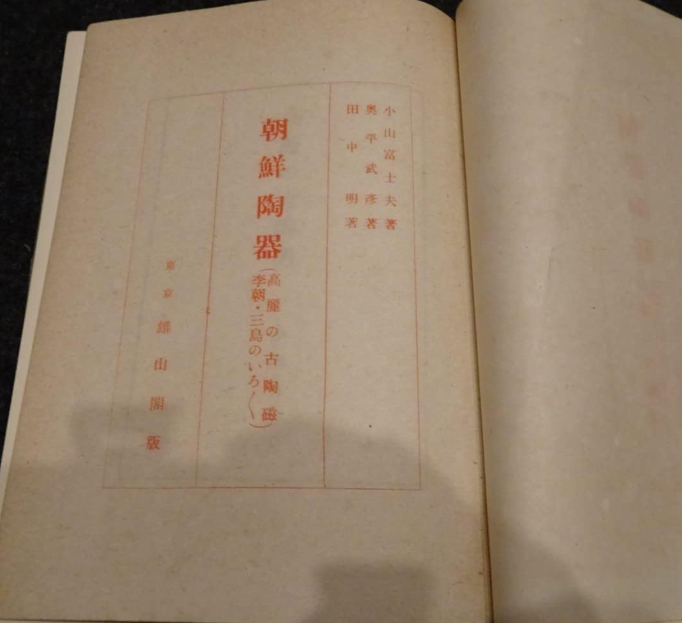 小山富士夫著
奥平武彦著
田中明著
朝鮮陶器
(高麗の古陶磁
李朝・三島のいろ〳〵)
東京 雄山閣版